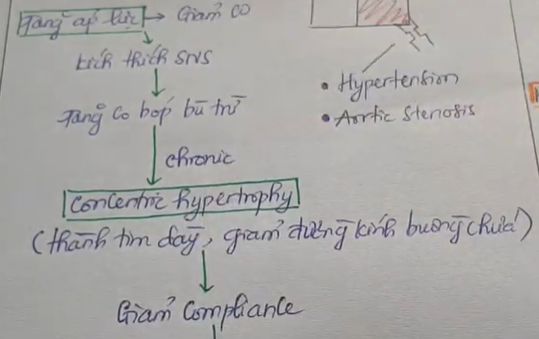 Tăng áp lực → Giảm CO
kích thích SNS
Tăng co bóp bù trừ
chronic
Concentric hypertrophy
(thành tim dày, giảm đường kính buồng chứa)
Giảm Compliance
• Hypertension
• Aortic Stenosis